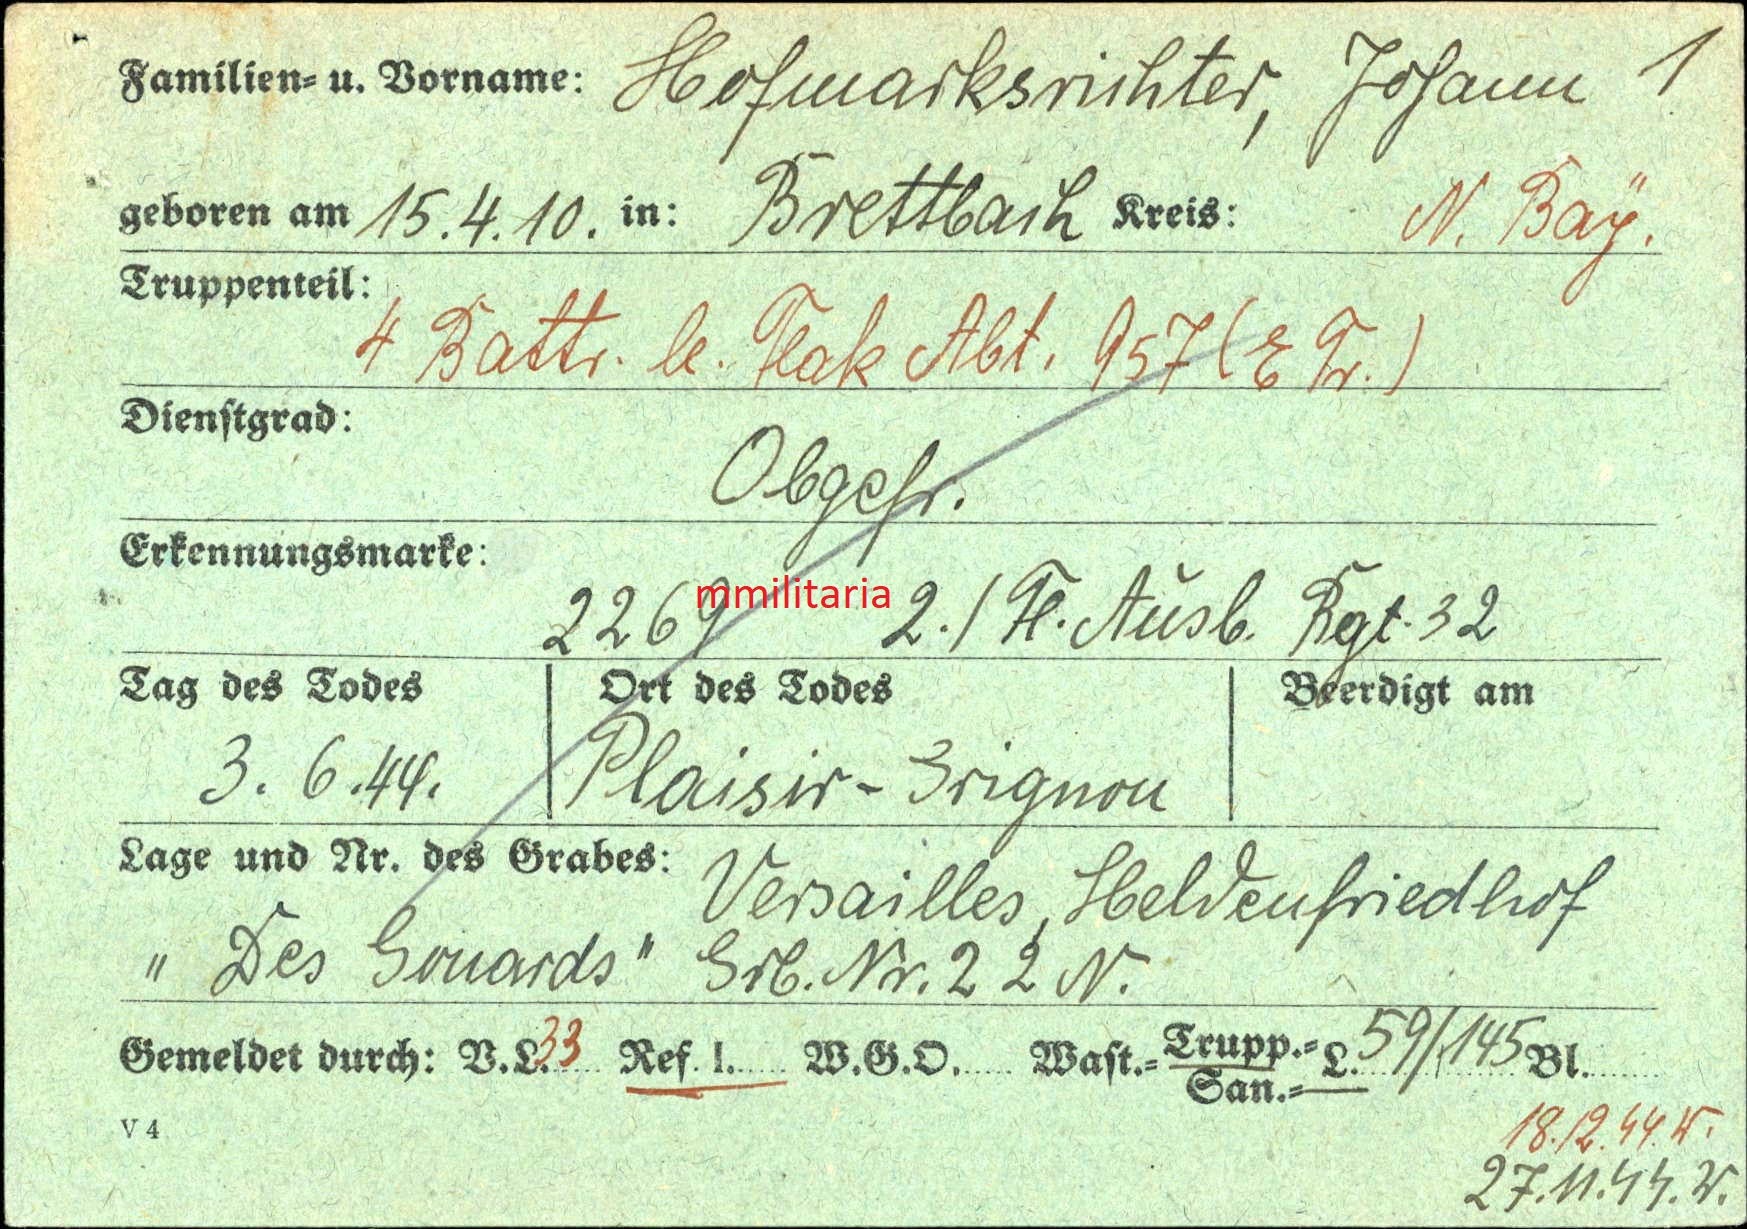 Familien= u. Vorname: Hofmarksrichter, Johann 1
geboren am 15.4.10. in: Brettbach Kreis: N. Bay.
Truppenteil:
4 Battr. le. Flak Abt. 957 (E Tr.)
Dienstgrad:
Obgefr.
Erkennungsmarke:
2269 2./Fl. Ausb. Rgt. 32
mmilitaria
Tag des Todes Ort des Todes Beerdigt am
3. 6. 44. Plaisir-Grignon
Lage und Nr. des Grabes: Versailles, Heldenfriedhof
" Des Gonards" Grb. Nr. 2 2 N.
Gemeldet durch: V.L. 33 Ref. 1. W.G.O. Wast.= Trupp.= L. 59/145 Bl.
San.=
V 4
18.12.44. W.
27.11.44. W.